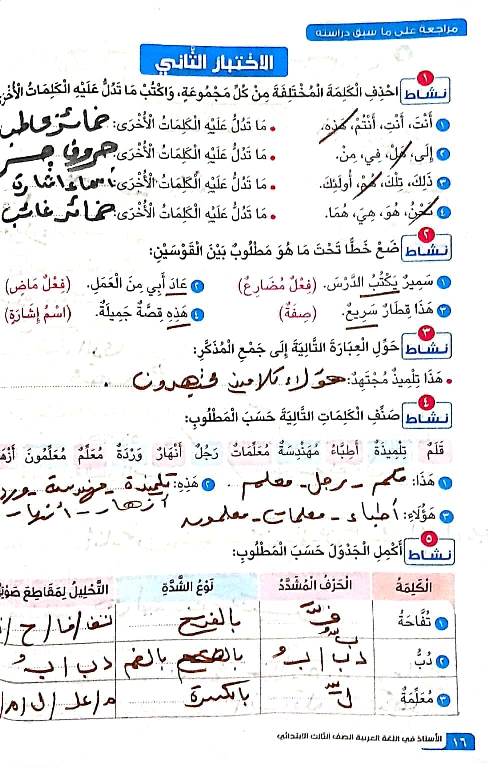 مراجعة على ما سبق دراسته
الاختبار الثاني
نشاط ١ احْذِفِ الْكَلِمَةَ الْمُخْتَلِفَةَ مِنْ كُلِّ مَجْمُوعَةٍ، وَاكْتُبْ مَا تَدُلُّ عَلَيْهِ الْكَلِمَاتُ الْأُخْرَى
١ أَنْتَ، أَنْتِ، أَنْتُمْ، هَذِهِ. • مَا تَدُلُّ عَلَيْهِ الْكَلِمَاتُ الْأُخْرَى: ضمائر مخاطب
٢ إِلَى، هَلْ، فِي، مِنْ. • مَا تَدُلُّ عَلَيْهِ الْكَلِمَاتُ الْأُخْرَى: حروف جر
٣ ذَلِكَ، تِلْكَ، هُمْ، أُولَئِكَ. • مَا تَدُلُّ عَلَيْهِ الْكَلِمَاتُ الْأُخْرَى: أسماء اشارة
٤ نَحْنُ، هُوَ، هِيَ، هُمَا. • مَا تَدُلُّ عَلَيْهِ الْكَلِمَاتُ الْأُخْرَى: ضمائر غائب
نشاط ٢ ضَعْ خَطًّا تَحْتَ مَا هُوَ مَطْلُوبٌ بَيْنَ الْقَوْسَيْنِ:
١ سَمِيرٌ يَكْتُبُ الدَّرْسَ. (فِعْلٌ مُضَارِعٌ) ٢ عَادَ أَبِي مِنَ الْعَمَلِ. (فِعْلٌ مَاضٍ)
٣ هَذَا قِطَارٌ سَرِيعٌ. (صِفَةٌ) ٤ هَذِهِ قِصَّةٌ جَمِيلَةٌ. (اسْمُ إِشَارَةٍ)
نشاط ٣ حَوِّلِ الْعِبَارَةَ التَّالِيَةَ إِلَى جَمْعِ الْمُذَكَّرِ:
• هَذَا تِلْمِيذٌ مُجْتَهِدٌ: هؤلاء تلاميذ مجتهدون
نشاط ٤ صَنِّفِ الْكَلِمَاتِ التَّالِيَةَ حَسَبَ الْمَطْلُوبِ:
قَلَمٌ تِلْمِيذَةٌ أَطِبَّاءُ مُهَنْدِسَةٌ مُعَلِّمَاتٌ رَجُلٌ أَنْهَارٌ وَرْدَةٌ مُعَلِّمٌ مُعَلِّمُونَ
١ هَذَا: قلم - رجل - معلم. ٢ هَذِهِ: تلميذة - مهندسة - ورد
أنهار -
٣ هَؤُلَاءِ: أطباء - معلمات - معلمون
نشاط ٥ أَكْمِلِ الْجَدْوَلَ حَسَبَ الْمَطْلُوبِ:
الْكَلِمَةُ الْحَرْفُ الْمُشَدَّدُ نَوْعُ الشَّدَّةِ التَّحْلِيلُ لِمَقَاطِعَ
١ تُفَّاحَةٌ فَّ بالفتح تفـ/فا/ح/
٢ دُبٌّ بٌّ دب/بٌ بالضم دب/بٌ
٣ مُعَلِّمَةٌ لِّ بالكسرة م/عل/ل/م/
١٦ الأستاذ في اللغة العربية الصف الثالث الابتدائي